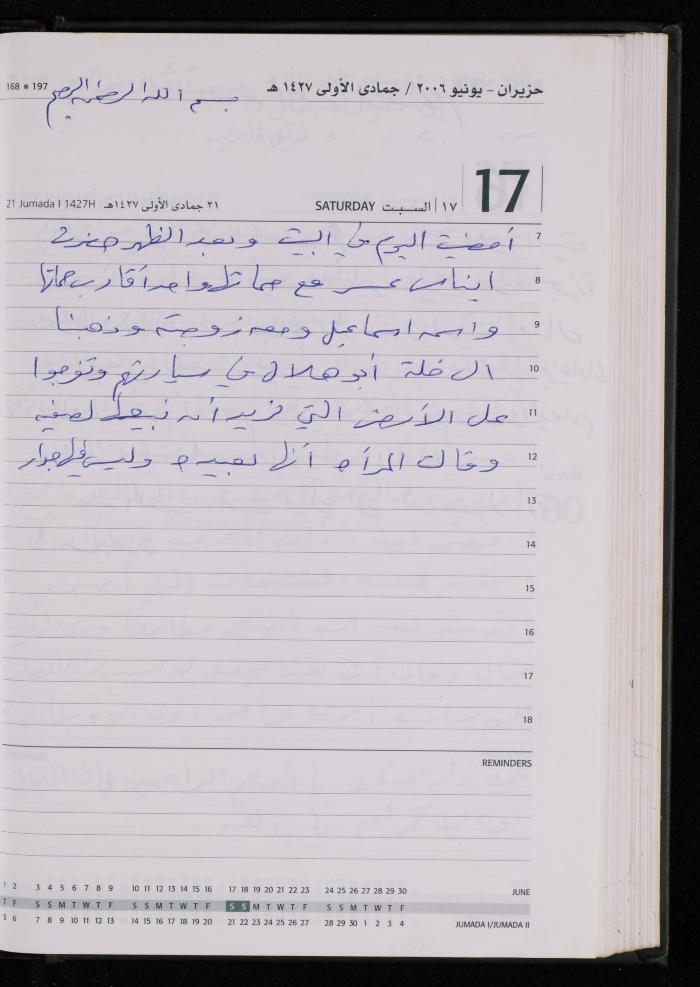 حزيران - يونيو ٢٠٠٦ / جمادى الأولى ١٤٢٧ هـ
168 ■ 197
بسم الله الرحمن الرحيم
17
١٧ السبت SATURDAY
٢١ جمادى الأولى ١٤٢٧هـ 21 Jumada I 1427H
7 أمضيت اليوم في البيت وبعد الظهر حضرت
8 ايناس مع حماتها واحد أقارب حماتها
9 واسمه اسماعيل ومعه زوجته وذهبنا
10 الى خلة أبو هلال في سيارتهم وتفرجوا
11 على الأرض التي نريد أن نبيعها لصفيه
12 وقالت المرأه أنها بعيده وليس لها جوار
13
14
15
16
17
18
REMINDERS
1 2 3 4 5 6 7 8 9 10 11 12 13 14 15 16 17 18 19 20 21 22 23 24 25 26 27 28 29 30 JUNE
T F S S M T W T F S S M T W T F S S M T W T F S S M T W T F
5 6 7 8 9 10 11 12 13 14 15 16 17 18 19 20 21 22 23 24 25 26 27 28 29 30 1 2 3 4 JUMADA I/JUMADA II